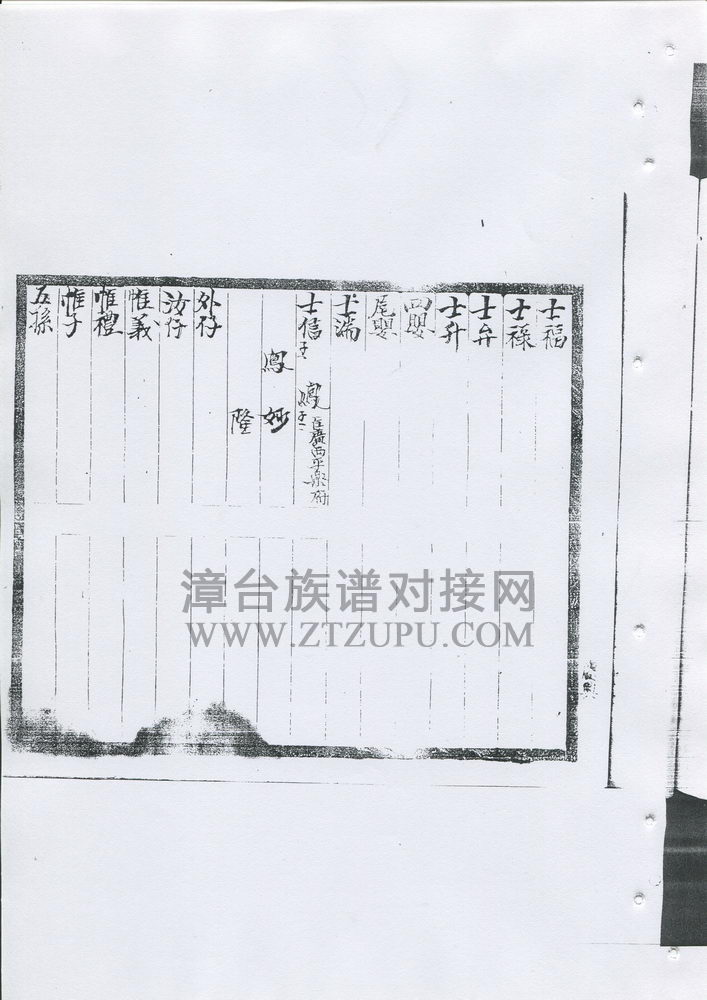 士福
士祿
士弁
士升
四嬰
尾嬰
士滿
士信
住廣西平樂府
鳳
妙
隆
外仔
汝仔
惟義
惟禮
惟子
五孫
漳台族谱对接网
WWW.ZTZUPU.COM